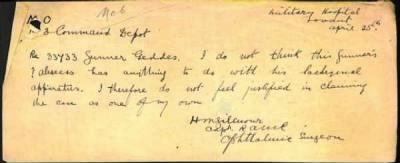 Mc 6
Military Hospital
April 25th
M O
No 3 Command Depot
Re 33733 Gunner Geddes. I do not think this Gunner's
? abscess has anything to do with his lachrymal
apparatus. I therefore do not feel justified in claiming
the case as one of my own
Capt. R.A.M.C.
Ophthalmic Surgeon